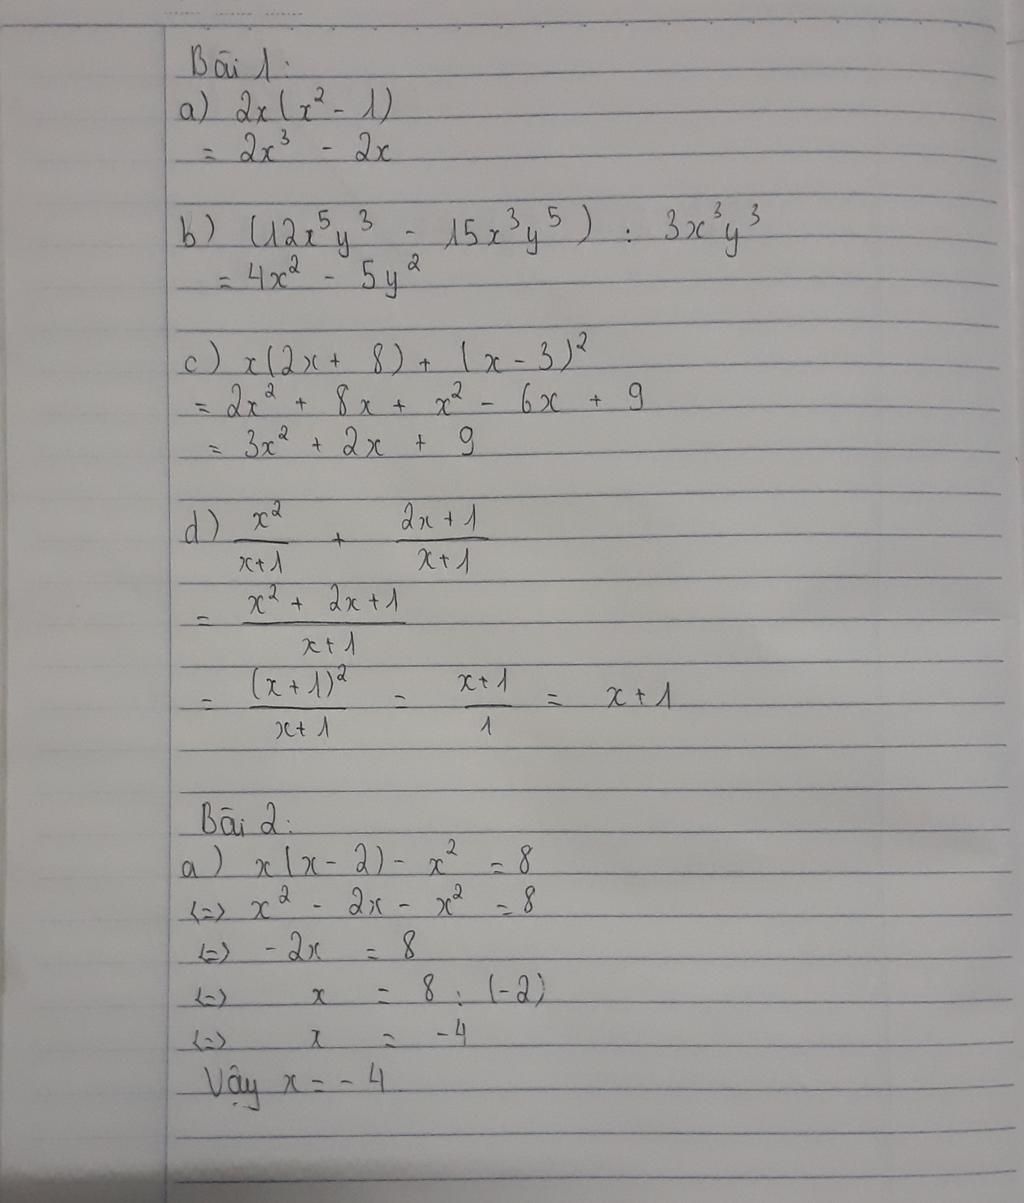 Bài 1:
a) 2x(x² - 1)
= 2x³ - 2x
b) (12x⁵y³ - 15x³y⁵) : 3x³y³
= 4x² - 5y²
c) x(2x + 8) + (x - 3)²
= 2x² + 8x + x² - 6x + 9
= 3x² + 2x + 9
d) x²/(x+1) + (2x+1)/(x+1)
= (x² + 2x+1)/(x+1)
= (x+1)²/(x+1) = (x+1)/1 = x+1
Bài 2:
a) x(x - 2) - x² = 8
<=> x² - 2x - x² = 8
<=> -2x = 8
<=> x = 8 : (-2)
<=> x = -4
Vậy x = -4